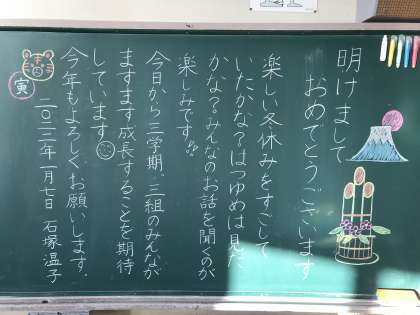 明けまして
おめでとうございます
楽しい冬休みをすごして
いたかな？はつゆめは見た
かな？みんなのお話を聞くのが
楽しみです！！
今日から三学期。三組のみんなが
ますます成長することを期待
しています
今年もよろしくお願いします。
二〇二二年一月七日 石塚温子
寅